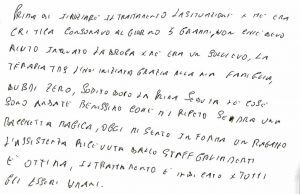 PRIMA DI INIZIARE IL TRATTAMENTO LA SITUAZIONE X ME ERA
CRITICA CONSUMAVO AL GIORNO 5 GRAMMI, NON CHIEDEVO
AIUTO LA DROGA X ME ERA UN SOLLIEVO, LA
TERAPIA TMS L'HO INIZIATA GRAZIE ALLA MIA FAMIGLIA,
DUBBI ZERO, SUBITO DOPO LA PRIMA SEDUTA LE COSE
SONO ANDATE BENISSIMO COME MI RIPETO SEMBRA UNA
BACCHETTA MAGICA, OGGI MI SENTO IN FORMA UN RAGAZZO
L'ASSISTENZA RICEVUTA DALLO STAFF
È OTTIMA, IL TRATTAMENTO È INDICATO X TUTTI
GLI ESSERI UMANI.